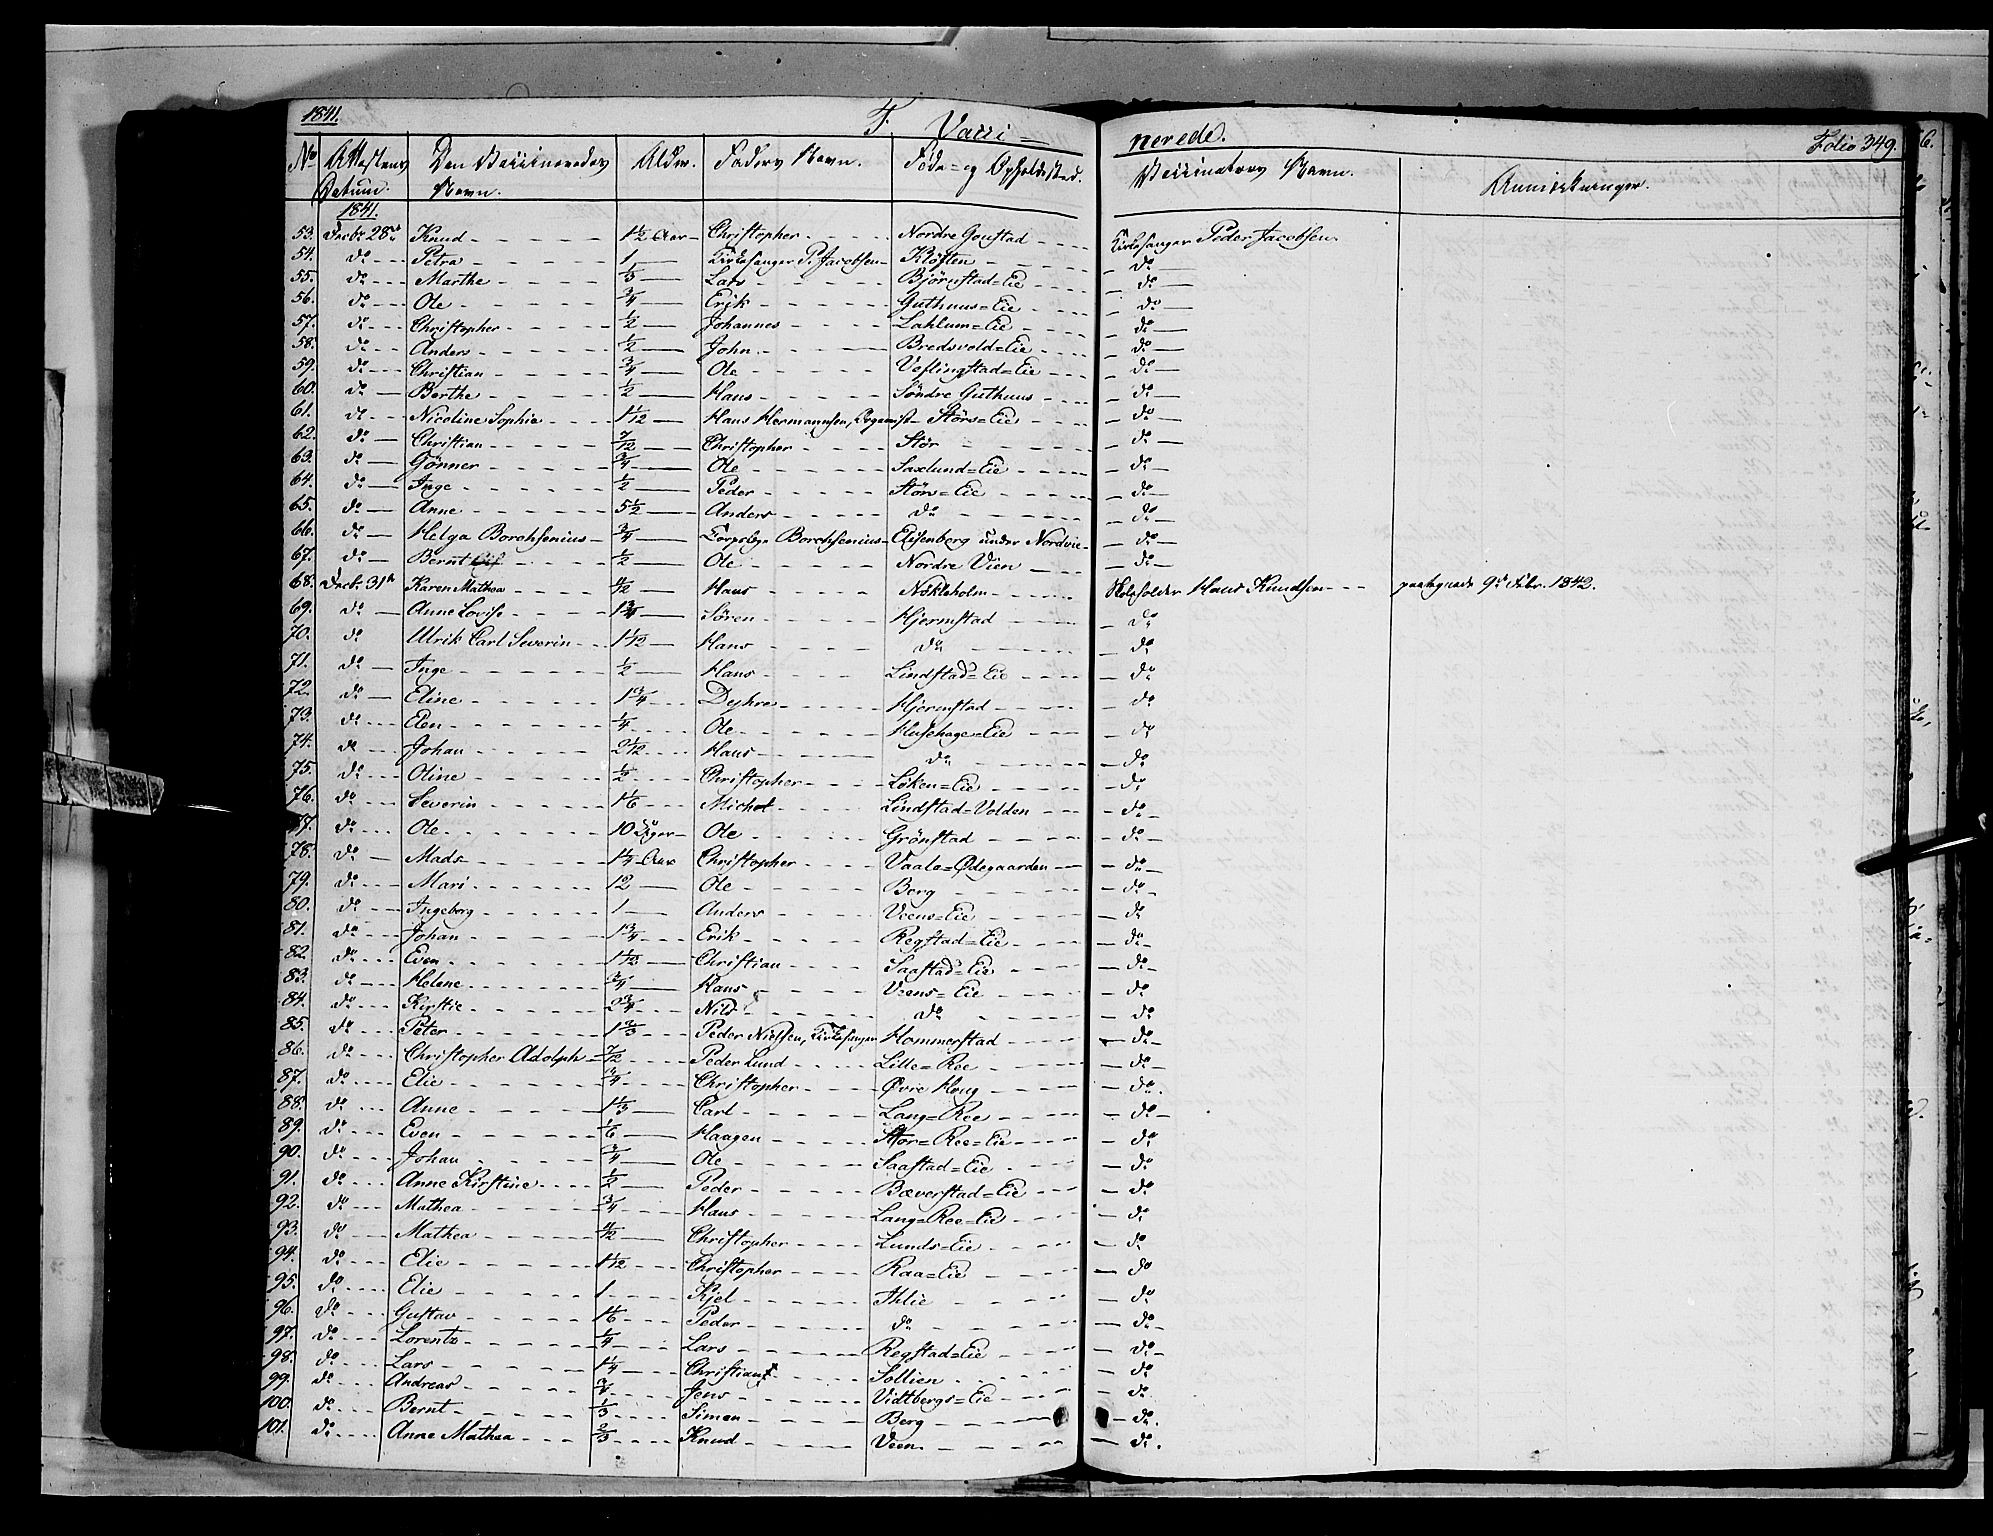 1841. F. Vacci= nerede. Folio 349.
No Attestens Datum. Den Vaccineredes Navn. Alder. Faders Navn. Føde- og Opholdssted. Vaccinators Navn. Anmærkninger.
1841.
53. Decbr 28de Knud 1½ Aar Christopher Nordre Goustad Kirkesanger Peder Jacobsen.
54. do Petra 1 Kirkesanger P. Jacobsen Kløften do
55. do Marthe 1/3 Lars Bjørnstad=Eie do
56. do Ole 3/4 Erik Guthuus=Eie do
57. do Christopher 1/2 Johannes Lahlum=Eie do
58. do Anders 1/2 John Bredsvold=Eie do
59. do Christian 3/4 Ole Veflingstad=Eie do
60. do Berthe 1/2 Hans Søndre Guthuus do
61. do Nicoline Sophie 1 1/12 Hans Hermannsen, Organist Störs=Eie do
62. do Christian 7/12 Christopher Stör do
63. do Gönner 3/4 Ole Saxlund=Eie do
64. do Inge 1/2 Peder Störs=Eie do
65. do Anne 5½ Anders do do
66. do Helga Borchsenius 3/4 Borchsenius Elisenberg under Nordvie do
67. do Bernt 1/2 Ole Nordre Vien do
68. Decbr 31te Karen Mathea Hans Nökleholm Skoleholder Hans Knudsen paategnede 9de Febr. 1842.
69. do Anne Lovise 1 3/4 Søren Hjermstad do
70. do Ulrik Carl Severin 1 1/12 Hans do do
71. do Inge 1/2 Hans Lindstad=Eie do
72. do Eline 1 3/4 Dyhre Hjermstad do
73. do Elen 1/4 Ole Husehage=Eie do
74. do Johan 2 1/12 Hans do do
75. do Oline 1/2 Christopher Løken=Eie do
76. do Severin 1 1/6 Michel Lindstad=Volden do
77. do Ole 10 Uger Ole Grönstad do
78. do Mads 1 1/4 Aar Christopher Vaale=Ødegaarden do
79. do Mari 12 Ole Berg do
80. do Ingeborg 1 Anders Veens=Eie do
81. do Johan 1 3/4 Erik Regstad=Eie do
82. do Even 1 1/12 Christian Saastad=Eie do
83. do Helene 3/4 Hans Veens=Eie do
84. do Kirstie 2 3/4 Nils do do
85. do Peter 1 2/3 Peder Nielsen, Kirkesanger Hommerstad do
86. do Christopher Adolph 7/12 Peder Lund Lille=Ree do
87. do Elie 3/4 Christopher Øvre Houg do
88. do Anne 1 1/3 Carl Lang=Ree do
89. do Even 1/6 Haagen Stor=Ree=Eie do
90. do Johan 3/4 Ole Saastad=Eie do
91. do Anne Kirstine 1/2 Peder Bæverstad=Eie do
92. do Mathea 3/4 Hans Lang=Ree=Eie do
93. do Mathea Christopher Lunds=Eie do
94. do Elie 1 1/12 Christopher Raa=Eie do
95. do Elie 1 Kjel Ihlie do
96. do Gustav 1 1/6 Peder do do
97. do Lorentz 1/4 Lars Regstad=Eie do
98. do Lars 1 1/4 Christian Sollien do
99. do Andreas 3/4 Jens Vidtbergs=Eie do
100. do Bernt 1/3 Simen Berg do
101. do Anne Mathea 2/3 Knud Veen do